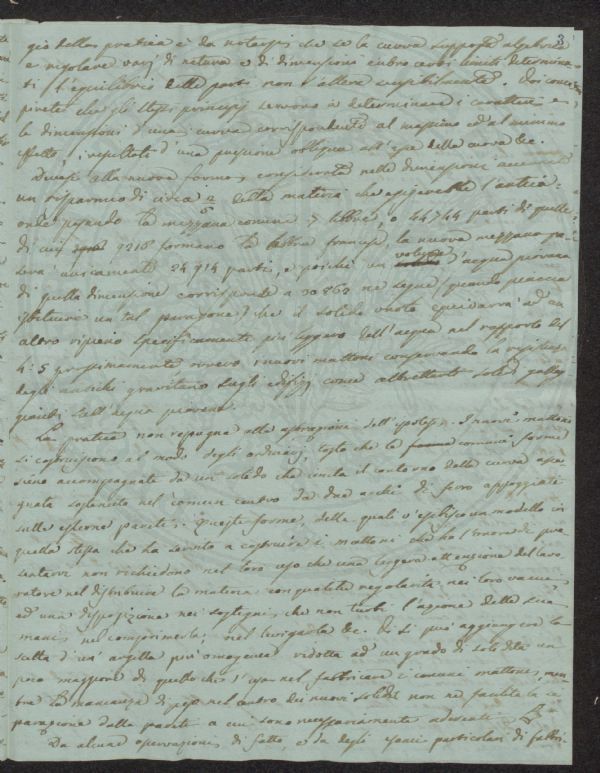 3
gio della pratica è da notarsi che se la curva supposta algebrica
e regolare varj di natura e di dimensioni entro certi limiti determina-
ti l'equilibrio delle parti non s'altera sensibilmente.
che gli stessi principj servono a determinare i caratteri e
le dimensioni d'una curva corrispondente al massimo ed al minimo
effetto, i resultati d'una pressione obliqua all'asse della curva &c.
alla nuova forma, considerata nelle dimensioni accennate
un risparmio di circa 2/5 della materia che esigerebbe l'antica
onde pesando la mezzana comune 7 libbre, o 44744 parti di quelle
di cui 9216 formano la libbra francese, la nuova mezzana pe-
serà unicamente 24914 parti, e poichè un volume d'acqua piovana
di quella dimensione corrisponde a 30862 ne segue (quando piaccia
istituire un tal paragone) che il solido vuoto equivarrà ad un
altro ripieno specificamente più leggero dell'acqua nel rapporto di
4:5 prossimamente ovvero i nuovi mattoni conservando la resistenza
degli antichi graviterano sugli edifizj come altrettanti solidi galleg-
gianti sull'acqua piovana.
La pratica non repugna alle astrazione dell'ipotesi. I nuovi mattoni
si costruiscono al modo degli ordinarj, tosto che le comuni forme
sieno accompagnate da un solido che imita il contorno della curva
sostenuto nel comun centro da due archi di ferro appoggiati
sulle esterne pareti. Queste forme, delle quali v'esibisco un modello in
quella stessa che ha servito a costruire i mattoni che ho l'onore di pre-
sentarvi non richiedono nel loro uso che una leggera attenzione del lavo-
ratore nel distribuire la materia con qualche regolarità nei loro vacui,
ad una disposizione nei sostegni, che non turbi l'azione delle sue
mani nel comprimerla, nel levigarla &c. Vi si può aggiungere la
scelta d'un' argilla più omogenea ridotta ad un grado di solidità un
poco maggiore di quello che s'usa nel fabbricare i comuni mattoni, men-
tre la mancanza di peso nel centro dei nuovi solidi non ne facilita la se-
parazione dalle pareti a cui sono necessariamente aderenti.
Da alcune operazioni di fatto, e da degli esami particolari di fabbri-